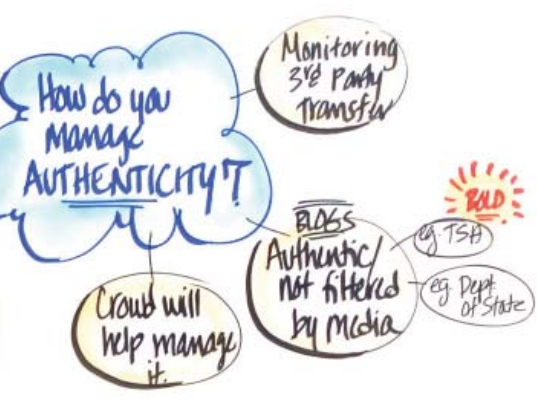 How do you
Manage
AUTHENTICITY?
Monitoring
3rd Party
Transfer
BLOGS
Authentic/
not filtered
by Media
BOLD
eg. TSA
eg. Dept.
of State
Crowd will
help manage
it.